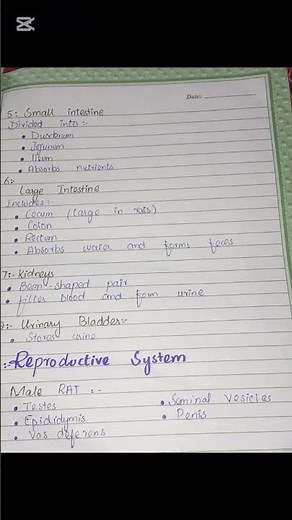 Date:
5: Small intestine
Divided into :-
• Duodenum
• Jejunum
• Ilium
• Absorbs nutrients
6:
Large Intestine
Includes:
• Cecum (large in rats)
• Colon
• Rectum
• Absorbs water and forms feces
7:- Kidneys
• Bean-shaped pair
• Filter blood and form urine
:- Urinary Bladder:-
• Stores urine
:-Reproductive System
Male RAT :-
• Testes • Seminal Vesicles
• Epididymis • Penis
• Vas deferens